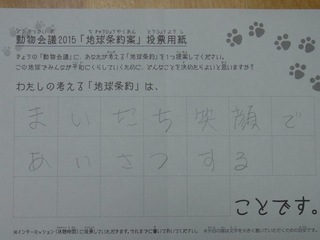 動物会議2015「地球条約案」投票用紙
きょうの「動物会議」に、あなたが考える「地球条約」を1つ提案してください。
この地球でみんなが平和にくらしていくために、どんなことを決めたらよいと思いますか？
わたしの考える「地球条約」は、
まいたち笑顔で
あいさつする
ことです。